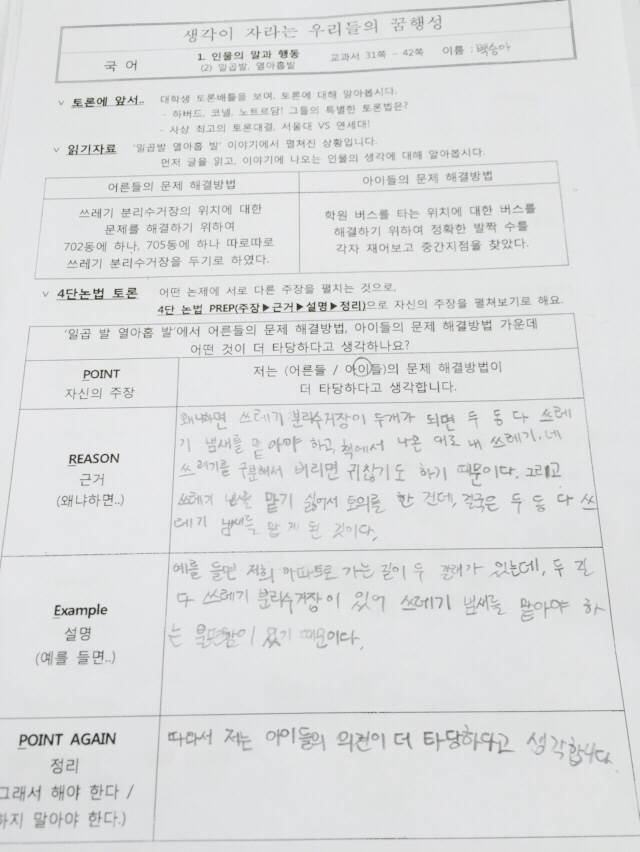 생각이 자라는 우리들의 꿈행성
국 어
1. 인물의 말과 행동
(2) 일곱발, 열아홉발
교과서 31쪽 - 42쪽 이름 : 백승아
∨ 토론에 앞서.. 대학생 토론배틀을 보며, 토론에 대해 알아봅시다.
- 하버드, 코넬, 노트르담! 그들의 특별한 토론법은?
- 사상 최고의 토론대결, 서울대 VS 연세대!
∨ 읽기자료 '일곱발 열아홉 발' 이야기에서 펼쳐진 상황입니다.
먼저 글을 읽고, 이야기에 나오는 인물의 생각에 대해 알아봅시다.
어른들의 문제 해결방법
쓰레기 분리수거장의 위치에 대한
문제를 해결하기 위하여
702동에 하나, 705동에 하나 따로따로
쓰레기 분리수거장을 두기로 하였다.
아이들의 문제 해결방법
학원 버스를 타는 위치에 대한 버스를
해결하기 위하여 정확한 발짝 수를
각자 재어보고 중간지점을 찾았다.
∨ 4단논법 토론 어떤 논제에 서로 다른 주장을 펼치는 것으로,
4단 논법 PREP(주장▶근거▶설명▶정리)으로 자신의 주장을 펼쳐보기로 해요.
'일곱 발 열아홉 발'에서 어른들의 문제 해결방법, 아이들의 문제 해결방법 가운데
어떤 것이 더 타당하다고 생각하나요?
POINT
자신의 주장
저는 (어른들 / 아이들)의 문제 해결방법이
더 타당하다고 생각합니다.
REASON
근거
(왜냐하면..)
왜냐하면 쓰레기 분리수거장이 두개가 되면 두 동 다 쓰레
기 냄새를 맡아야 하고, 책에서 나온 대로 내 쓰레기, 네
쓰레기를 구분해서 버리면 귀찮기도 하기 때문이다. 그리고
쓰레기 맡기 싫어서 토의를 한 건데, 결국은 두 동 다 쓰
레기 냄새를 맡게 된 것이다.
Example
설명
(예를 들면..)
예를 들면 저희 아파트로 가는 길이 두 갈래가 있는데, 두 길
다 쓰레기 분리수거장이 있어 쓰레기 냄새를 맡아야 하
는 불편함이 있기 때문이다.
POINT AGAIN
정리
그래서 해야 한다 /
하지 말아야 한다.)
따라서 저는 아이들의 의견이 더 타당하다고 생각합니다.